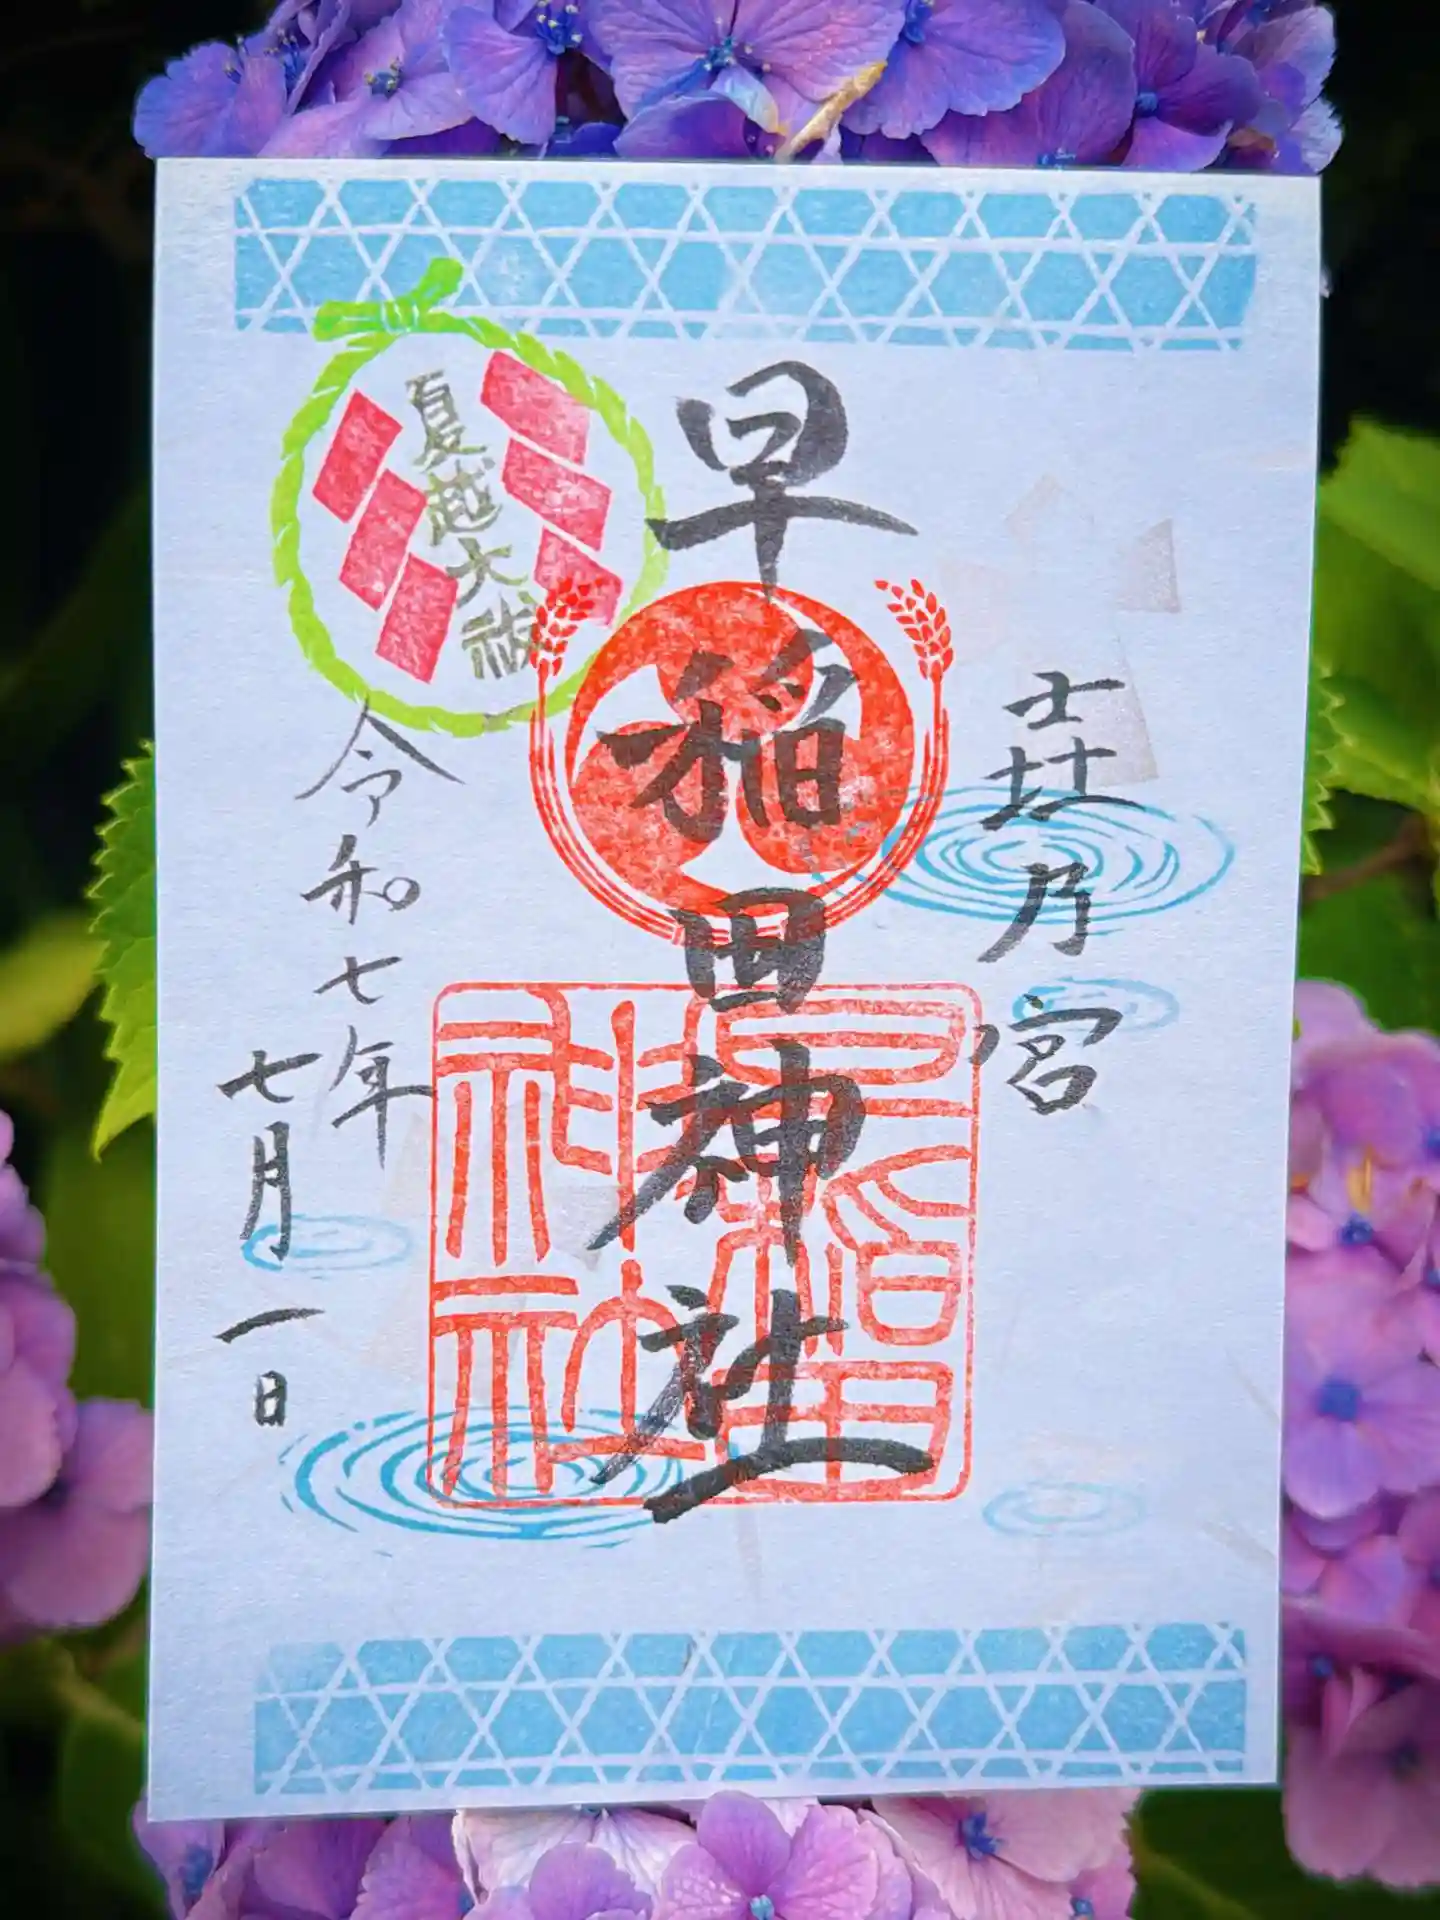 壵乃宮
早稲田神社
早稲田
神社
夏越大祓
令和七年
七月一日